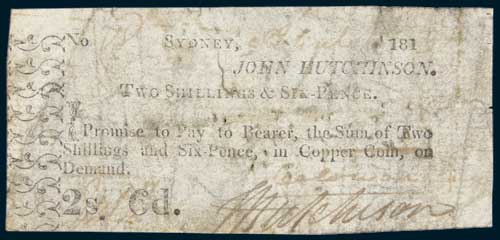 No SYDNEY, 181
JOHN HUTCHINSON.
TWO SHILLINGS & SIX-PENCE.
I Promise to Pay to Bearer, the Sum of Two
Shillings and Six-Pence, in Copper Coin, on
Demand.
2s. 6d. Hutchinson